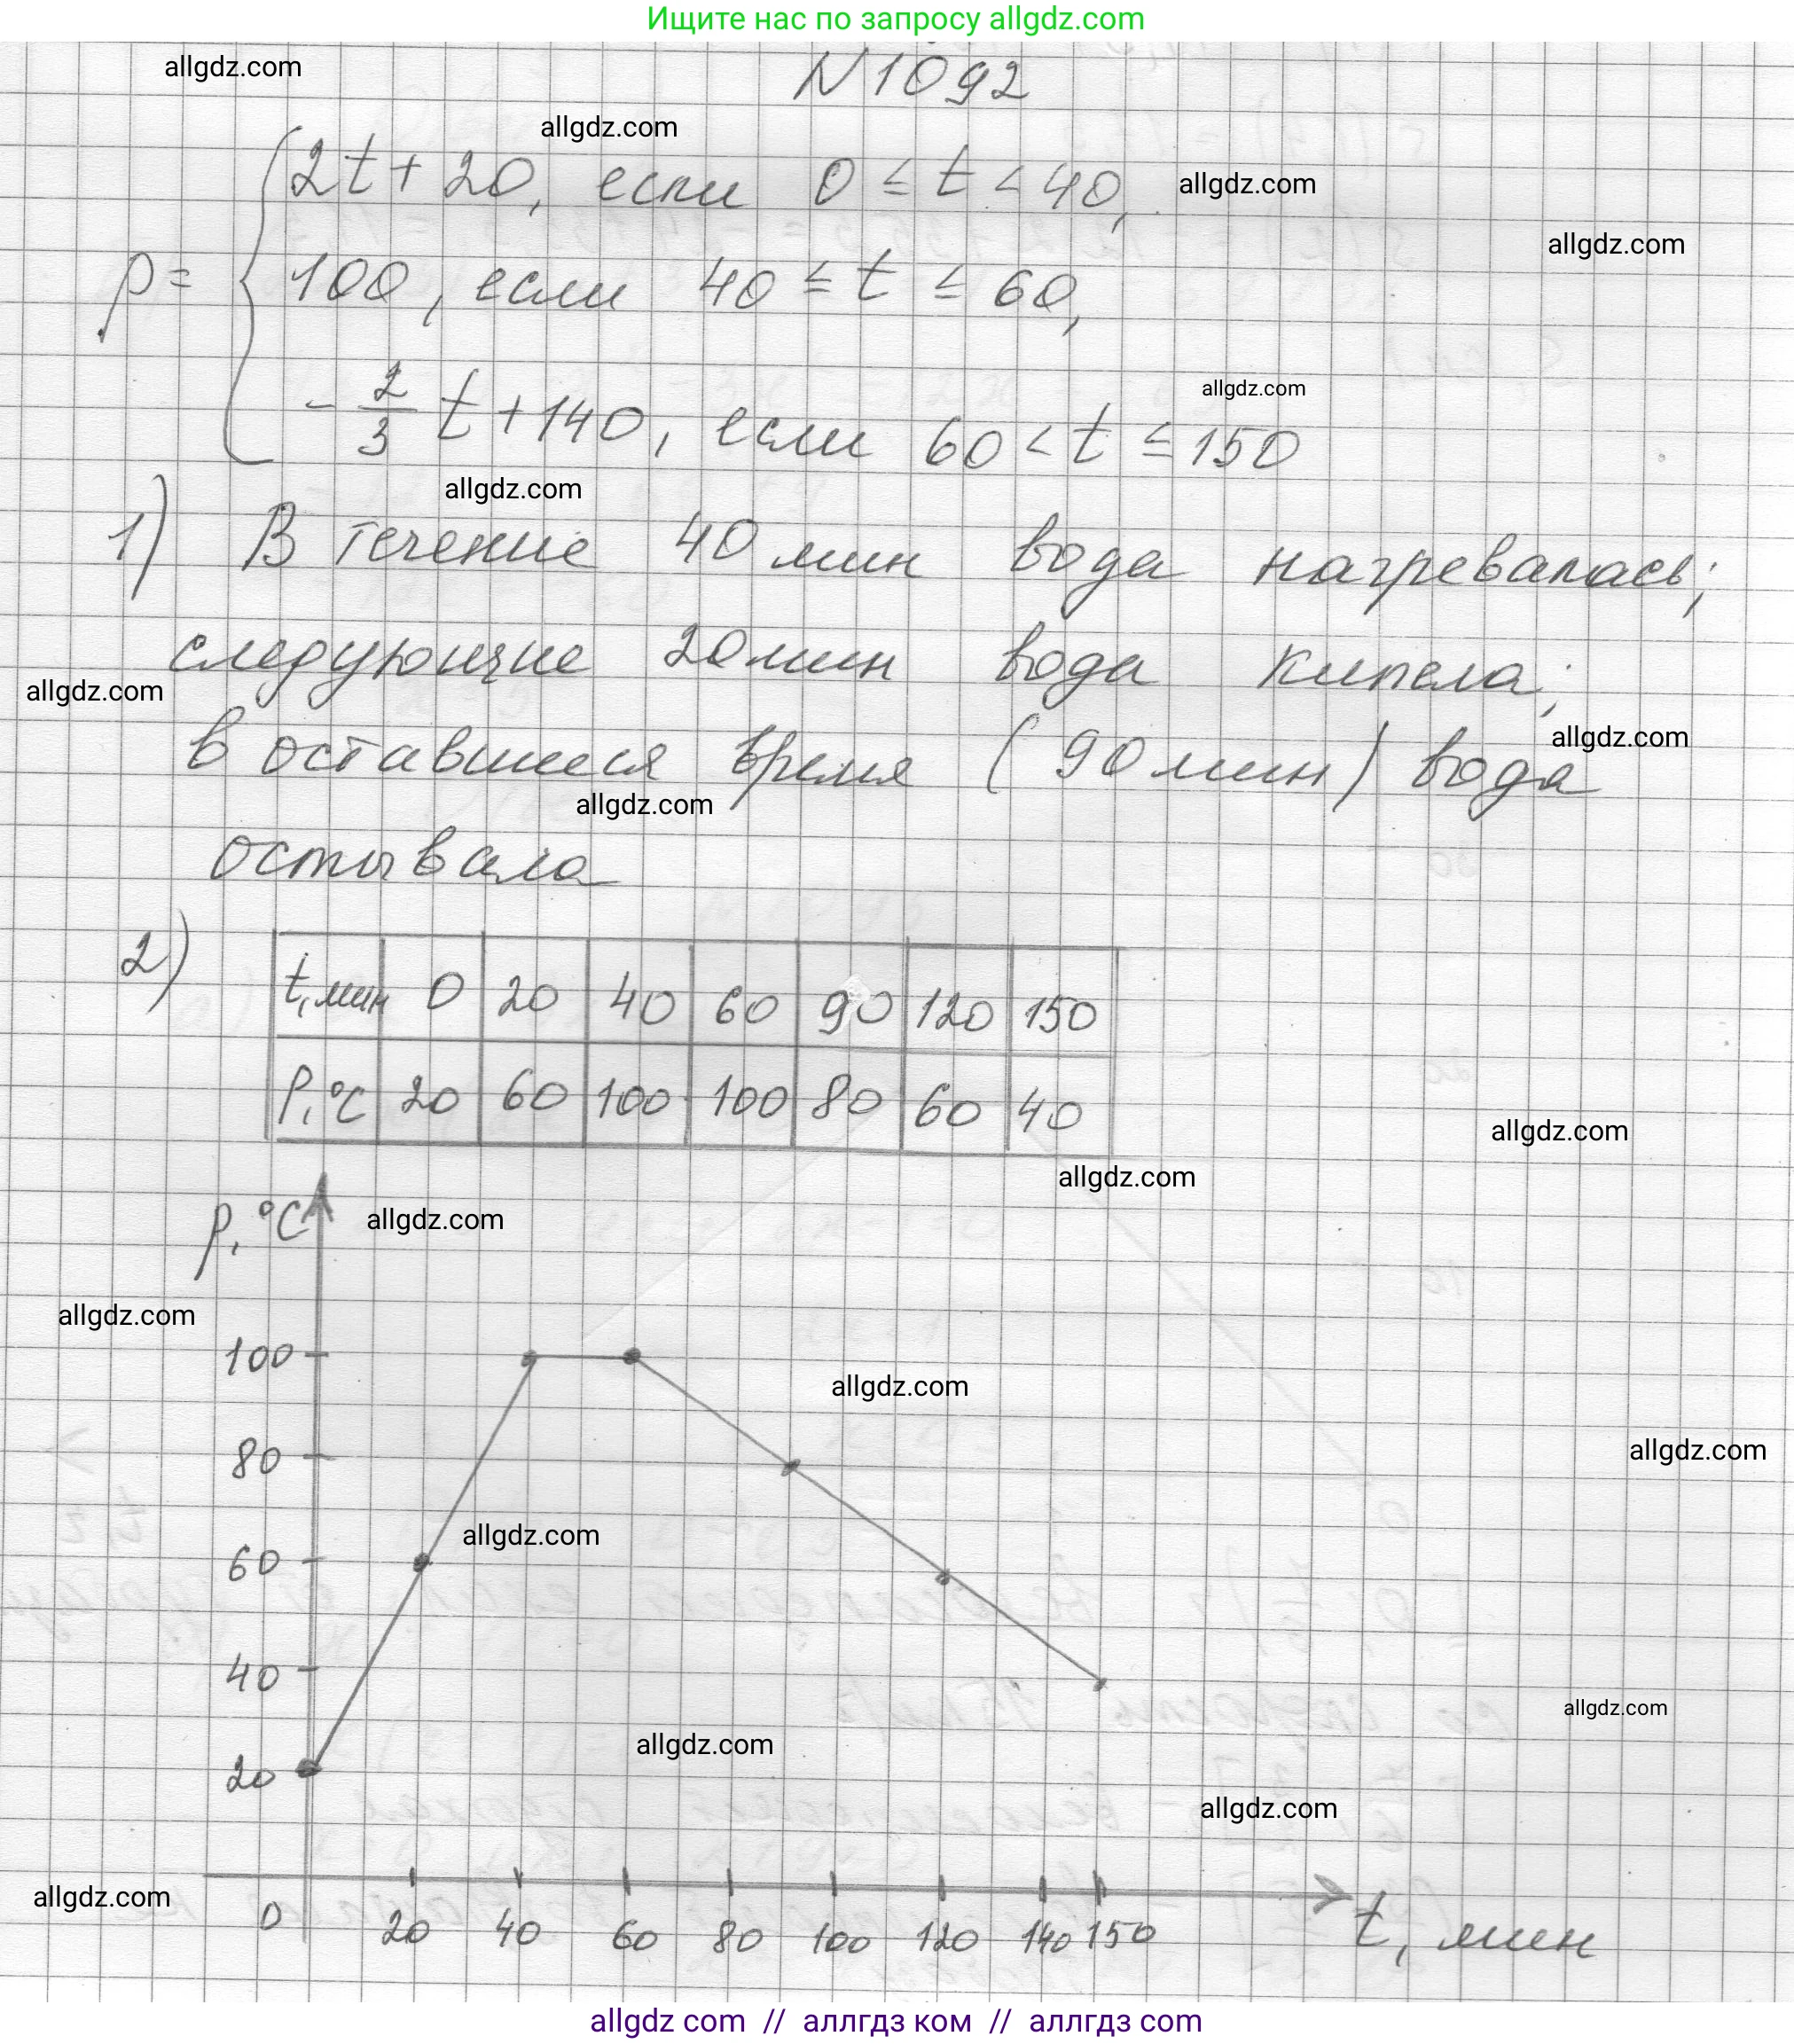 Ищите нас по запросу allgdz.com
allgdz.com
N 1092
allgdz.com
p = { 2t + 20, если 0 ≤ t < 40,
allgdz.com
allgdz.com
100, если 40 ≤ t ≤ 60,
allgdz.com
- 2/3 t + 140, если 60 < t ≤ 150
allgdz.com
1) В течение 40 мин вода нагревалась;
следующие 20 мин вода кипела;
allgdz.com
в оставшееся время (90 мин) вода
allgdz.com
allgdz.com
остывала
2)
t, мин 0 20 40 60 90 120 150
P, °C 20 60 100 100 80 60 40
allgdz.com
allgdz.com
p, °C
allgdz.com
allgdz.com
100
allgdz.com
80
allgdz.com
60
allgdz.com
40
allgdz.com
allgdz.com
20
allgdz.com
allgdz.com
0 20 40 60 80 100 120 140 150 t, мин
allgdz com // аллгдз ком // аллгдз com